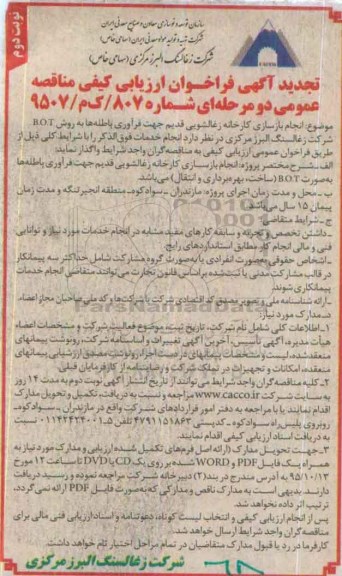 نوبت دوم
سازمان توسعه و نوسازی معادن و صنایع معدنی ایران
شرکت تهیه و تولید مواد معدنی ایران (سهامی خاص)
شرکت زغالسنگ البرز مرکزی (سهامی خاص)
تجدید آگهی فراخوان ارزیابی کیفی مناقصه
عمومی دو مرحله‌ای شماره ۸۰۷/ک م/۹۵۰۷
موضوع: انجام بازسازی کارخانه زغالشویی قدیم جهت فرآوری باطله‌ها به روش B.O.T
شرکت زغالسنگ البرز مرکزی در نظر دارد انجام خدمات فوق الذکر را با شرایط کلی ذیل از
طریق فراخوان عمومی ارزیابی کیفی به مناقصه گران واجد شرایط واگذار نماید:
الف ـ شرح مختصر پروژه: انجام بازسازی کارخانه زغالشویی قدیم جهت فرآوری باطله‌ها
به صورت B.O.T (ساخت، بهره‌برداری و انتقال) می‌باشد.
ب ـ محل و مدت زمان اجرای پروژه: مازندران ـ سوادکوه ـ منطقه انجیرتنگه و مدت زمان
پیمان ۱۵ سال می‌باشد.
ج ـ شرایط متقاضی:
ـ داشتن تخصص و تجربه و سابقه کارهای مفید مشابه در انجام خدمات مورد نیاز و توانایی
فنی و مالی انجام کار مطابق استانداردهای رایج.
ـ اشخاص حقوقی به‌صورت انفرادی یا به‌صورت گروه مشارکت شامل حداکثر سه پیمانکار
در قالب مشارکت مدنی یا ثبت شده بر اساس قانون تجارت می‌توانند متقاضی انجام خدمات
پیمانکاری شوند.
ـ ارائه شناسنامه ملی و تصویر مصدق کد اقتصادی شرکت یا شرکت‌ها و کد ملی صاحبان مجاز امضاء.
د ـ مدارک مورد نیاز:
۱ـ اطلاعات کلی شامل نام شرکت، تاریخ ثبت، موضوع فعالیت شرکت و مشخصات اعضاء
هیأت مدیره، آگهی تأسیس، آخرین آگهی تغییرات و اساسنامه شرکت، رونوشت پیمانهای
منعقد شده، لیست و مشخصات پیمانهای در دست اجرا، رونوشت مصدق ارزشیابی پیمانهای
منعقده، امکانات و تجهیزات در تملک شرکت و رضایتنامه از کارفرمایان قبلی.
۲ـ کلیه مناقصه‌گران واجد شرایط می‌توانند از تاریخ انتشار آگهی نوبت دوم به مدت ۱۴ روز
به سایت شرکت www.cacco.ir مراجعه و نسبت به دریافت، تکمیل و تحویل مدارک
اقدام نمایند یا با مراجعه به دفتر امور قراردادهای شرکت واقع در مازندران ـ سوادکوه ـ
روبروی پلیس راه سوادکوه ـ کدپستی ۴۷۹۱۱۵۱۸۶۳ تلفن ۵ـ۰۱۱۴۲۴۲۴۰۰۱ نسبت
به دریافت اسناد ارزیابی کیفی اقدام نمایند.
۳ـ جهت تحویل مدارک (ارائه اصل فرم‌های تکمیل شده ارزیابی و مدارک مورد نیاز به
همراه یک فایل PDF و WORD شده بر روی یک CD یا DVD) تا ساعت ۱۲ مورخ
۹۵/۱۰/۱۳ به آدرس مندرج در بند (۲) دبیرخانه شرکت مراجعه نموده و رسید دریافت
دارند. بدیهی است به مدارک ناقص و مدارکی که به‌صورت فایل PDF ارائه نمی‌گردد،
ترتیب اثر داده نخواهد شد.
پس از انجام ارزیابی کیفی و انتخاب لیست کوتاه، دعوتنامه و اسناد ارزیابی فنی مالی برای
مناقصه‌گران واجد شرایط ارسال خواهد شد.
کارفرما در رد یا قبول مدارک متقاضیان در تمام مراحل اختیار تام خواهد داشت.
شرکت زغالسنگ البرز مرکزی